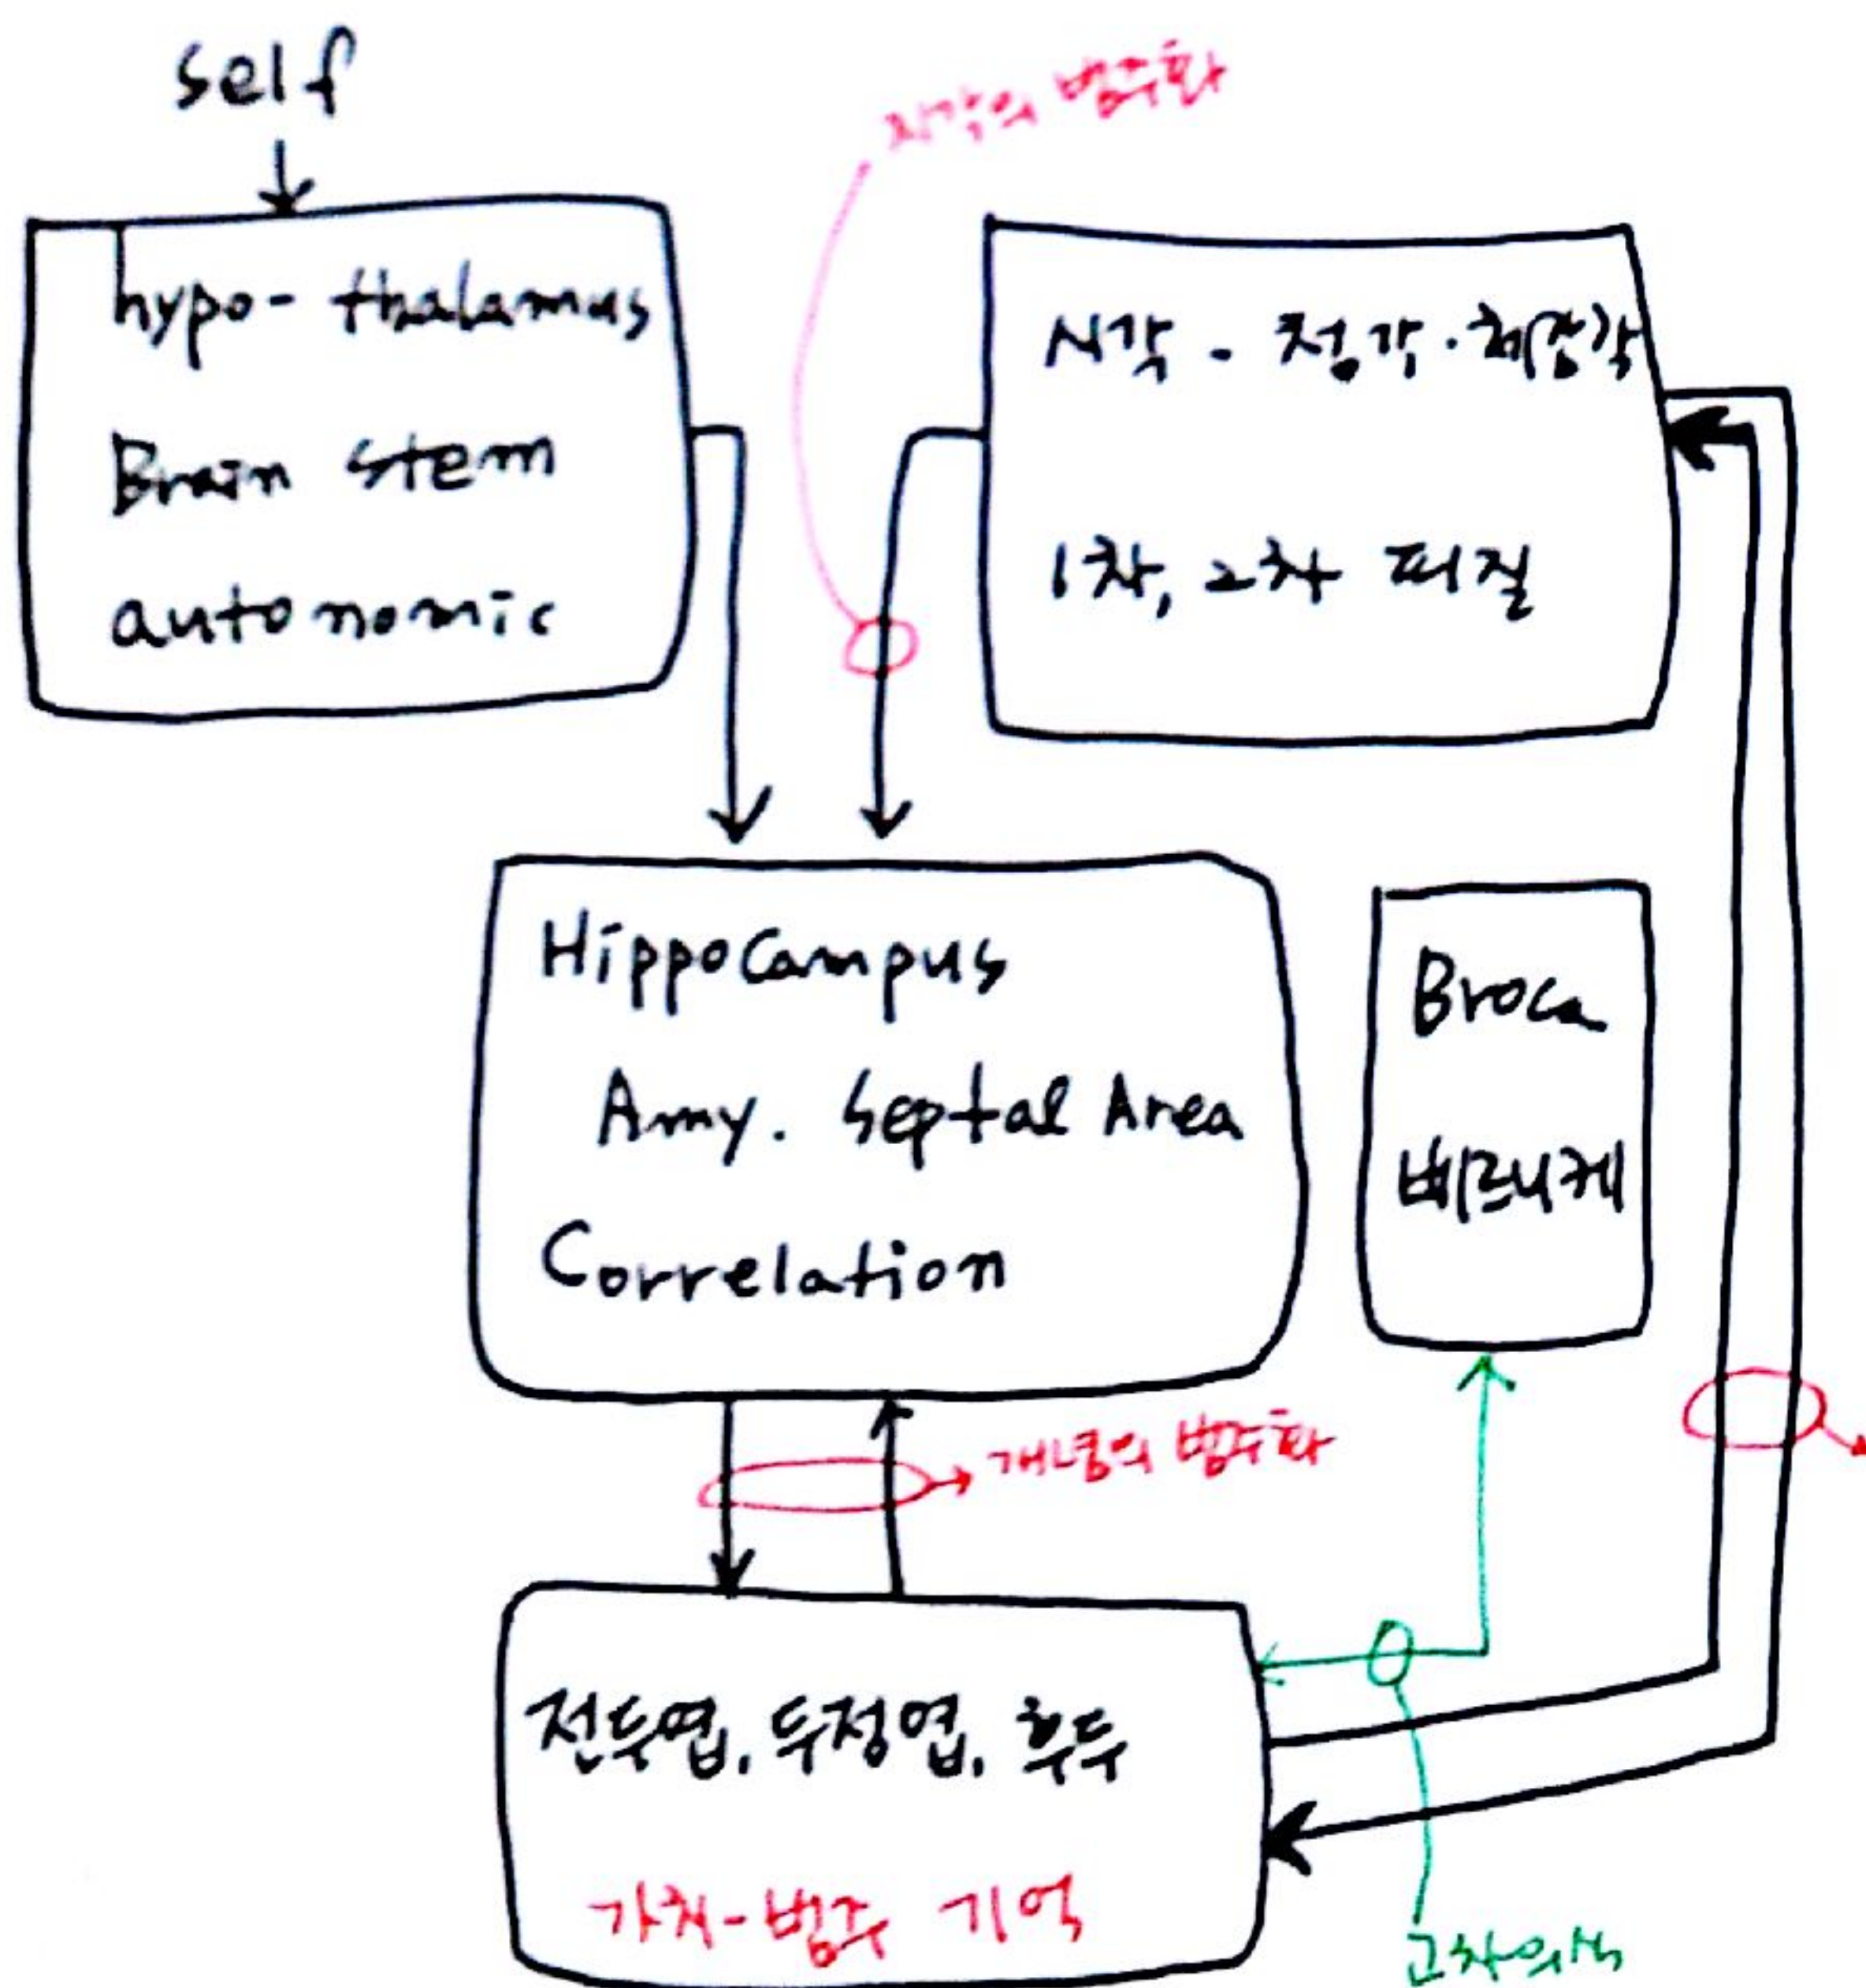 self
지각의 범주화
hypo-thalamus
Brain stem
autonomic
시각 - 청각·체감각
1차, 2차 피질
Hippocampus
Amy. Septal Area
Correlation
Broca
베르니케
개념의 범주화
전두엽, 두정엽, 후두
가치-범주 기억
고차의식